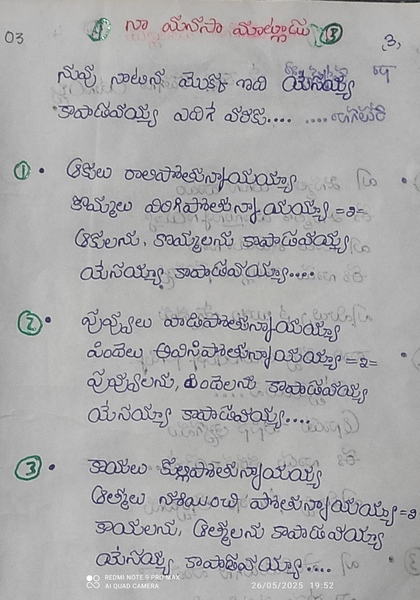 03 నా మనసా మాట్లాడు 3,
నువు నాటిన మొక్క ఇది యేసయ్య
కాపాడవయ్య ఎదిగే వరకు.... ....
① • ఆకులు రాలిపోతున్నాయయ్యా
కొమ్మలు విరిగిపోతున్నాయయ్యా =2=
ఆకులను, కొమ్మలను కాపాడవయ్యా
యేసయ్యా కాపాడవయ్యా....
② • పువ్వులు వాడిపోతున్నాయయ్యా
పిందెలు అవిసిపోతున్నాయయ్యా =2=
పువ్వులను, పిందెలను కాపాడవయ్య
యేసయ్యా కాపాడవయ్య....
③ • కాయలు కుల్లిపోతున్నాయయ్య
ఆత్మలు నశియించి పోతున్నాయయ్య =2
కాయలను, ఆత్మలను కాపాడవయ్యా
యేసయ్య కాపాడవయ్య....
REDMI NOTE 9 PRO MAX
AI QUAD CAMERA
26/05/2025 19:52